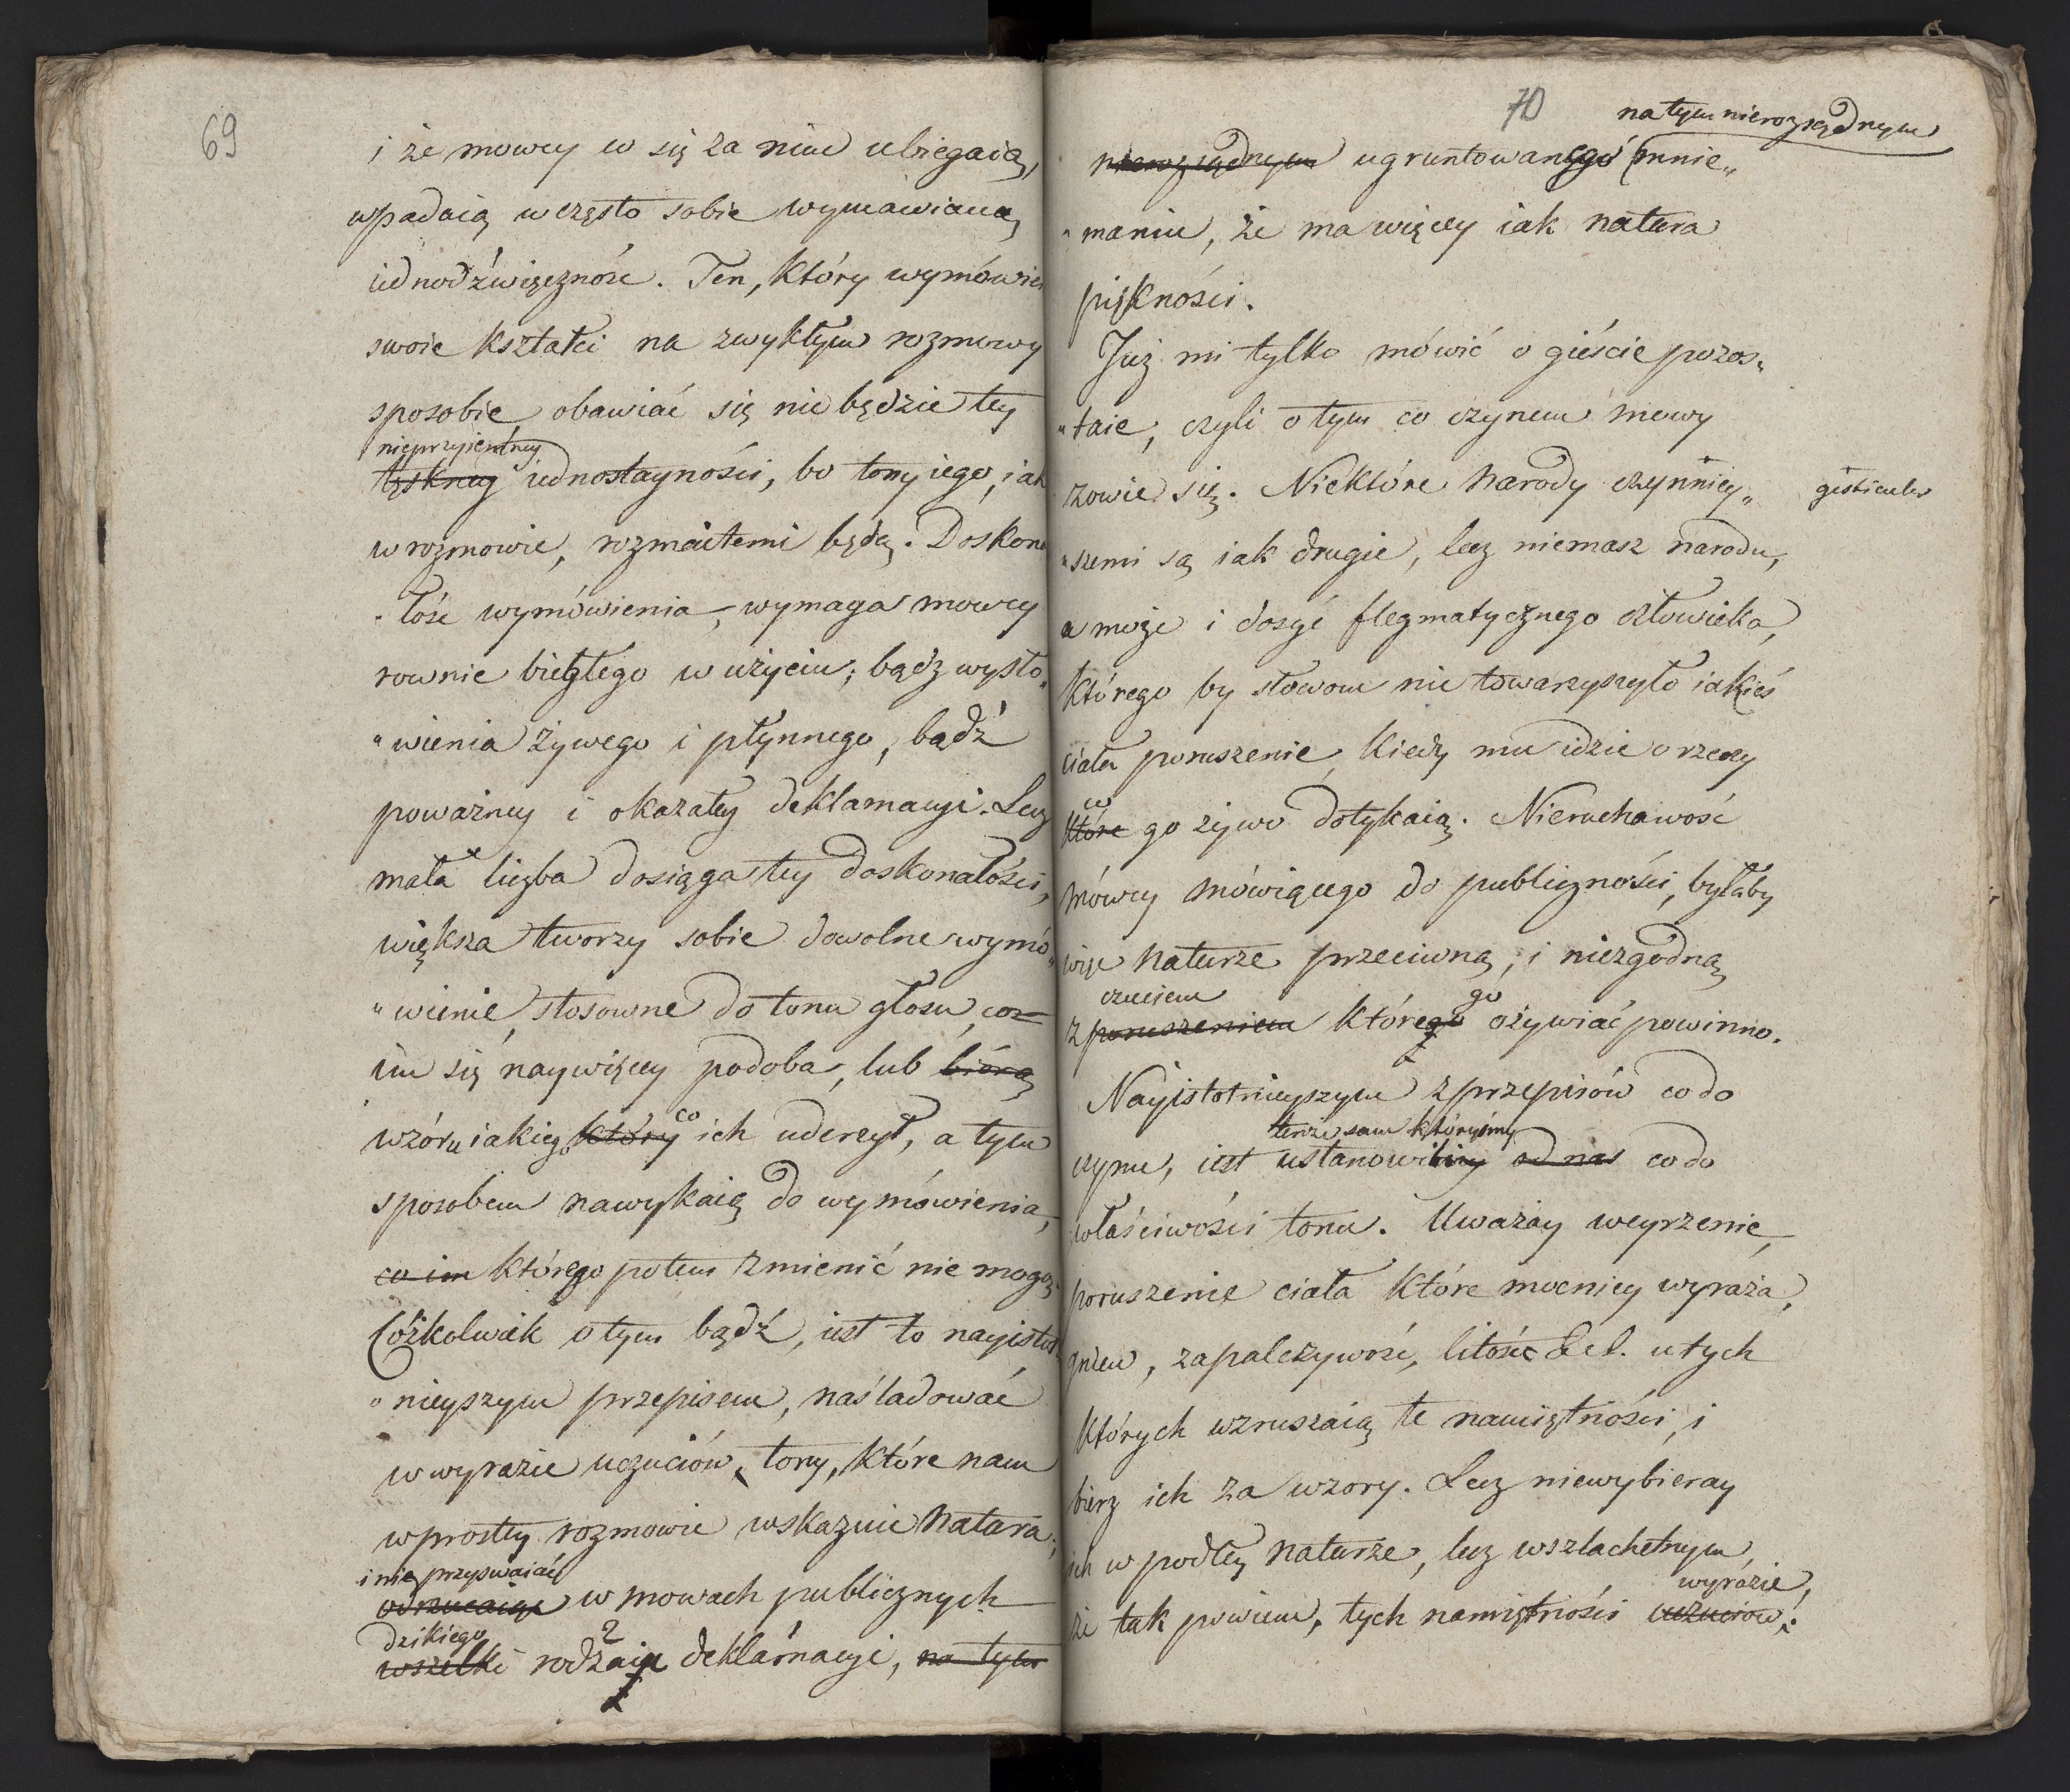 69
i że mowcy w się za nim ubiegaią,
wpadaią w często sobie wymawianą
iednodźwięcznośc. Ten, który wymówie
swoie kształci na zwykłym rozmowy
sposobie, obawiać się nie będzie tey
nieprzyiemney
tęskney iednostayności, bo tony iego, iak
w rozmowie, rozmaitemi będą. Doskona
łośc wymówienia, wymaga mowcy
rownie biegłego w użyciu, bądz wysło„
„wienia żywego i płynnego, bądź
poważney i okazałey deklamacyi. Lecz
mała liczba dosiąga tey doskonałości,
większa tworzy sobie dowolne wymó„
„wienie, stosowne do tonu głosu, co
im się naywięcey podoba, lub biorą
co
wzóru iakiego który ich uderzył, a tym
sposobem nawykaią do wymówienia,
co im którego potem zmienić nie mogą.
Cóżkolwiek o tym bądź, iest to nayistot„
„nieyszym przepisem, naśladować
w wyrazie uczuciów, tony, które nam
w prostey rozmowie wskazuie natura,
i nie przyswaiać
odrzucaiąc w mowach publicznych
dzikiego
wszelki rodzaiu deklamacyi, na tym
70
na tym nierozsądnym
nierozsądnym ugruntowanego mnie„
„maniu, że ma więcey iak natura
piękności.
Już mi tylko mówić o gieście pozos„
„taie, czyli o tym co czynem mowy
zowie się. Niektóre narody czynniey„
gesticuler
„szemi są iak drugie, lecz niemasz narodu,
a może i dosyć flegmatycznego człowieka,
którego by słowom nie towarzyszyło iakieś
ciała poruszenie, kiedy mu idzie o rzeczy
co
które go żywo dotykaią. Nieruchawość
mówcy mówiącego do publiczności, byłaby
więc naturze przeciwną, i niezgodną
czuciem
go
z poruszeniem które ożywiać powinno.
Nayistotnieyszym z przepisów co do
tenże sam któryśmy
czynu, iest ustanowiliny od nas co do
właściwości tonu. Uważay weyrzenie,
poruszenie ciała które mocniey wyraża,
gniew, zapalczywość, litośc &c. u tych
których wzruszaią te namiętności, i
bierz ich za wzory. Lecz niewybieray
ich w podłey naturze, lecz w szlachetnym,
wyrazie,
że tak powiem, tych namiętności uczuciów.